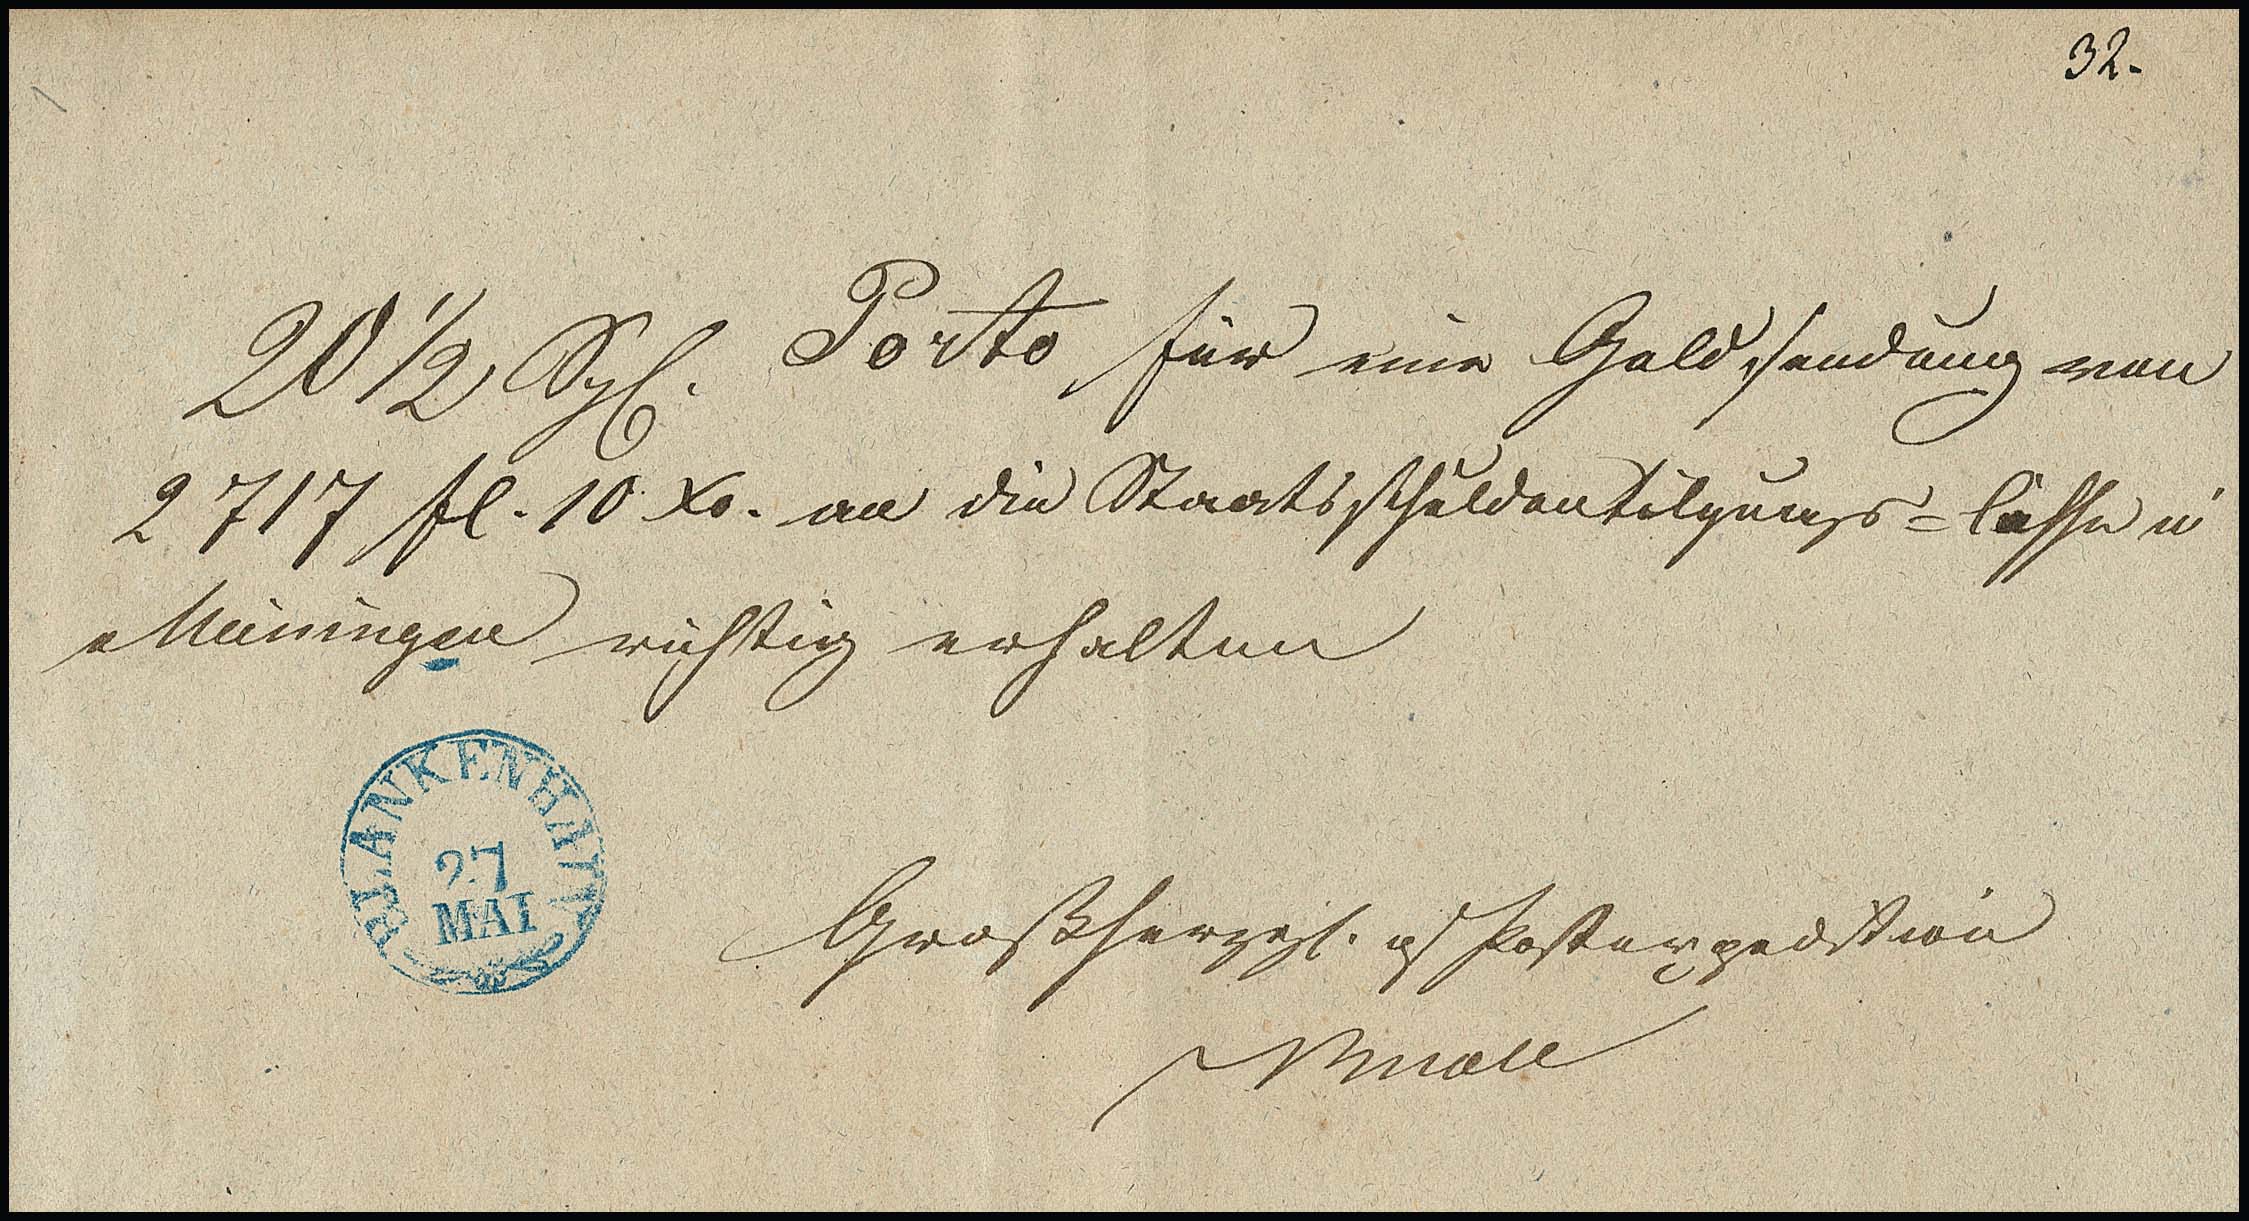 32.
20 1/2 Sgl. Porto für eine Geldsendung von
2717 fl. 10 Xr. an die Staatsschuldentilgungs=Casse in
Meiningen richtig erhalten
BLANKENHAIN
27
MAI
Großherzgl. Postexpedition